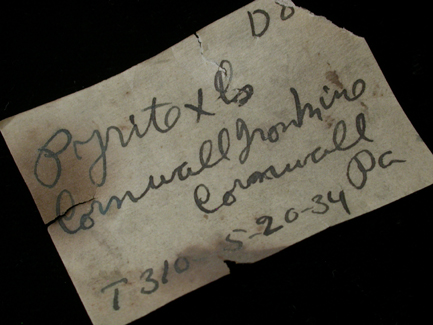 D8
Pyrite xls
Cornwall Iron Mine
Cornwall
Pa
T 310 5-20-34